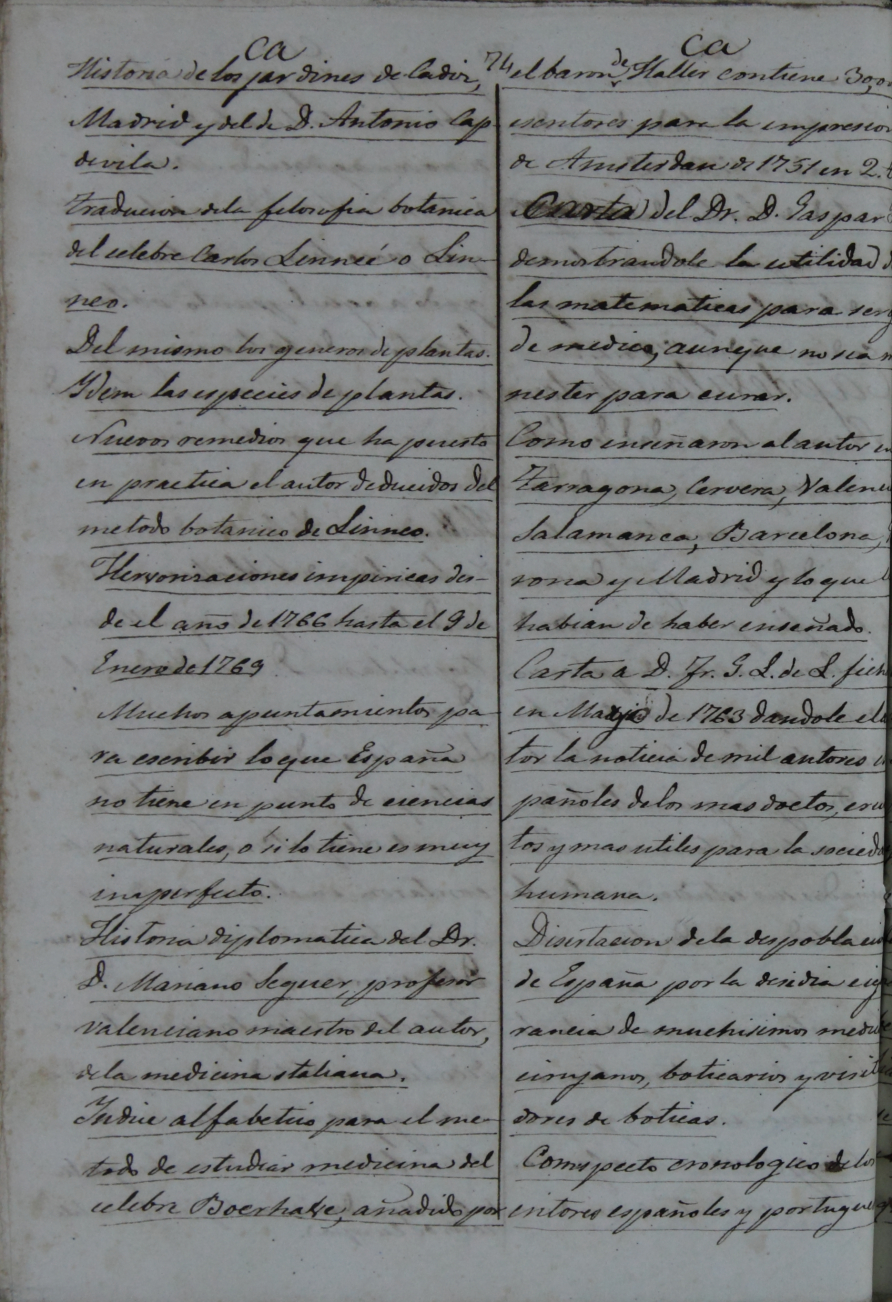 Ca
74
Historia de los jardines de Cadiz,
Madrid y del de D. Antonio Cap-
devila.
Traducion dela filosofia botanica
del celebre Carlos Linneé o Lin-
neo.
Del mismo los generos de plantas.
Idem las especies de plantas.
Nuevos remedios que ha puesto
en practica el autor deducidos del
metodo botanico de Linneo.
Hervorizaciones impiricas des-
de el año de 1766 hasta el 9 de
Enero de 1769
Muchos apuntamientos pa-
ra escribir lo que España
no tiene en punto de ciencias
naturales, o si lo tiene es muy
imperfecto.
Historia diplomatica del Dr.
D. Mariano Seguer, profesor
valenciano maestro del autor,
de la medicina italiana.
Indice alfabetico para el me-
todo de estudiar medicina del
celebre Boerhave, añadido por
Ca
el baron de Haller contiene 30,0
escritores para la impresion
de Amsterdan de 1751 en 2.
Carta del Dr. D. Gaspar
demostrandole la utilidad d
las matematicas para ser
de medico, aunque no sea m
nester para curar.
Como enseñaron al autor en
Tarragona, Cervera, Valen
Salamanca, Barcelona,
rona y Madrid y lo que
habian de haber enseñado.
Carta a D. Fr. G. L. de L. fech
en de 1763 dandole el
tor la noticia de mil autores
pañoles de los mas doctos, eru
tos y mas utiles para la socieda
humana.
Disertacion de la despobla
de España por la desidia e ig
rancia de muchisimos medi
cirujanos, boticarios y visit
dores de boticas.
Conspecto cronologico de los
critores españoles y portugue